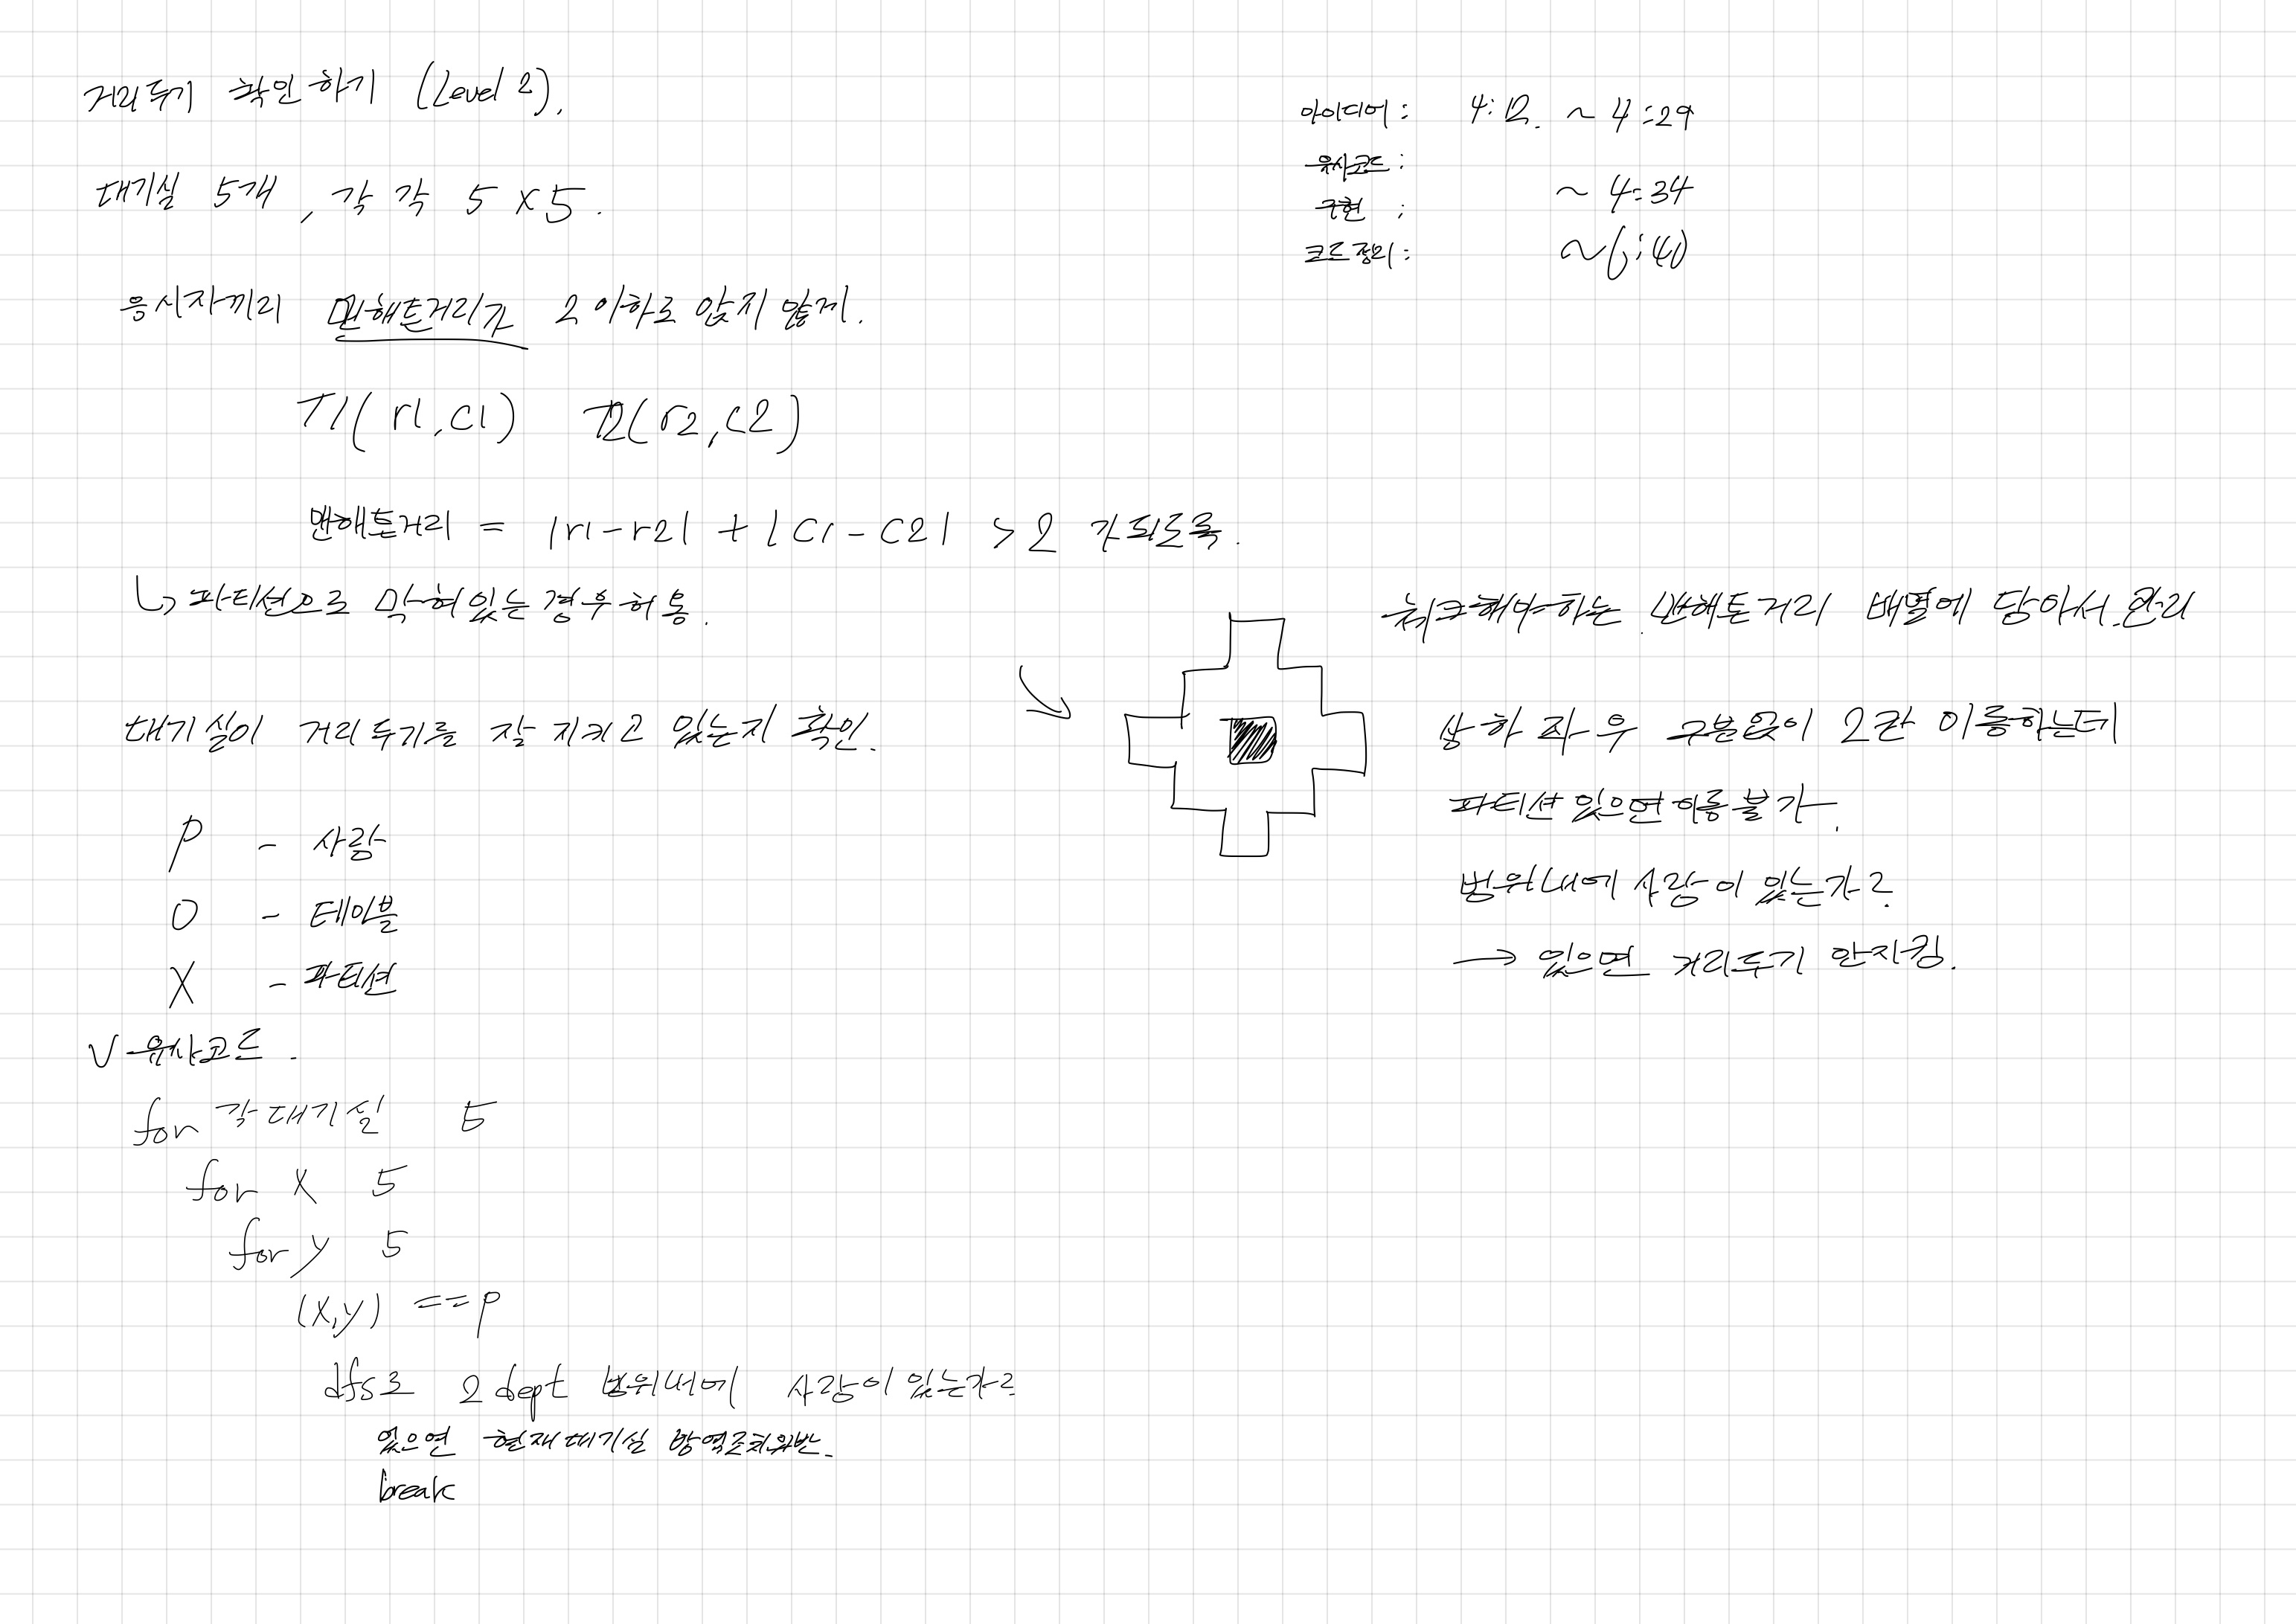 거리두기 확인하기 (Level 2).
대기실 5개, 각각 5 x 5.
응시자끼리 맨해튼거리가 2 이하로 앉지 않게.
T1(r1,c1) T2(r2,c2)
맨해튼거리 = |r1-r2| + |c1-c2| > 2 가 되도록.
↳ 파티션으로 막혀있는 경우 허용.
대기실이 거리두기를 잘 지키고 있는지 확인.
P - 사람
O - 테이블
X - 파티션
V 유사코드.
for 각 대기실 5
for x 5
for y 5
(x,y) == P
dfs로 2 dept 범위내에 사람이 있는가?
있으면 현재대기실 방역조치위반.
break
아이디어: 4:12. ~ 4:29
유사코드:
~ 4:34
구현 :
코드정리: ~ 6:40
체크해야하는 맨해튼거리 배열에 담아서 관리
상하좌우 구분없이 2칸 이동하는데
파티션 있으면 이동 불가.
범위내에 사람이 있는가?
→ 있으면 거리두기 안지킴.